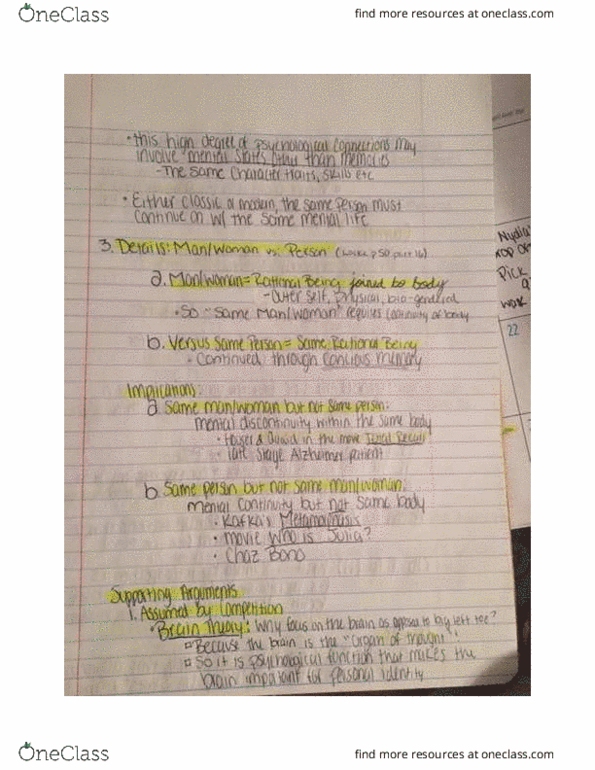 OneClass
find more resources at oneclass.com
• this high degree of psychological connections may
involve "mental states other than memories
- The same Character traits, skills etc
• Either classic or modern, the same person must
Continue on w/ the same mental life
3. Details: Man/Woman vs. Person (Locke p 50 part 16)
a. Man/woman = Rational Being joined to body
- outer self, physical, bio-gendered
• So "Same Man/woman" requires continuity of body
b. Versus Same Person = Same Rational Being
• Continued through Concious memory
Implications:
a. Same man/woman but not same person:
mental discontinuity within the same body
• Hauser & Quaid in the movie Total Recall
• late stage Alzheimer patient
b. Same person but not same man/woman:
mental continuity but not same body
• Kafka's
• movie Who is Julia?
• Chaz Bono
Supporting Arguments
1. Assumed by Competition
• Brain Theory: Why focus on the brain as opposed to big left toe?
Because the brain is the "organ of thought"
So it is psychological function that makes the
brain important for personal identity
Nydia
Pick
22
OneClass
find more resources at oneclass.com